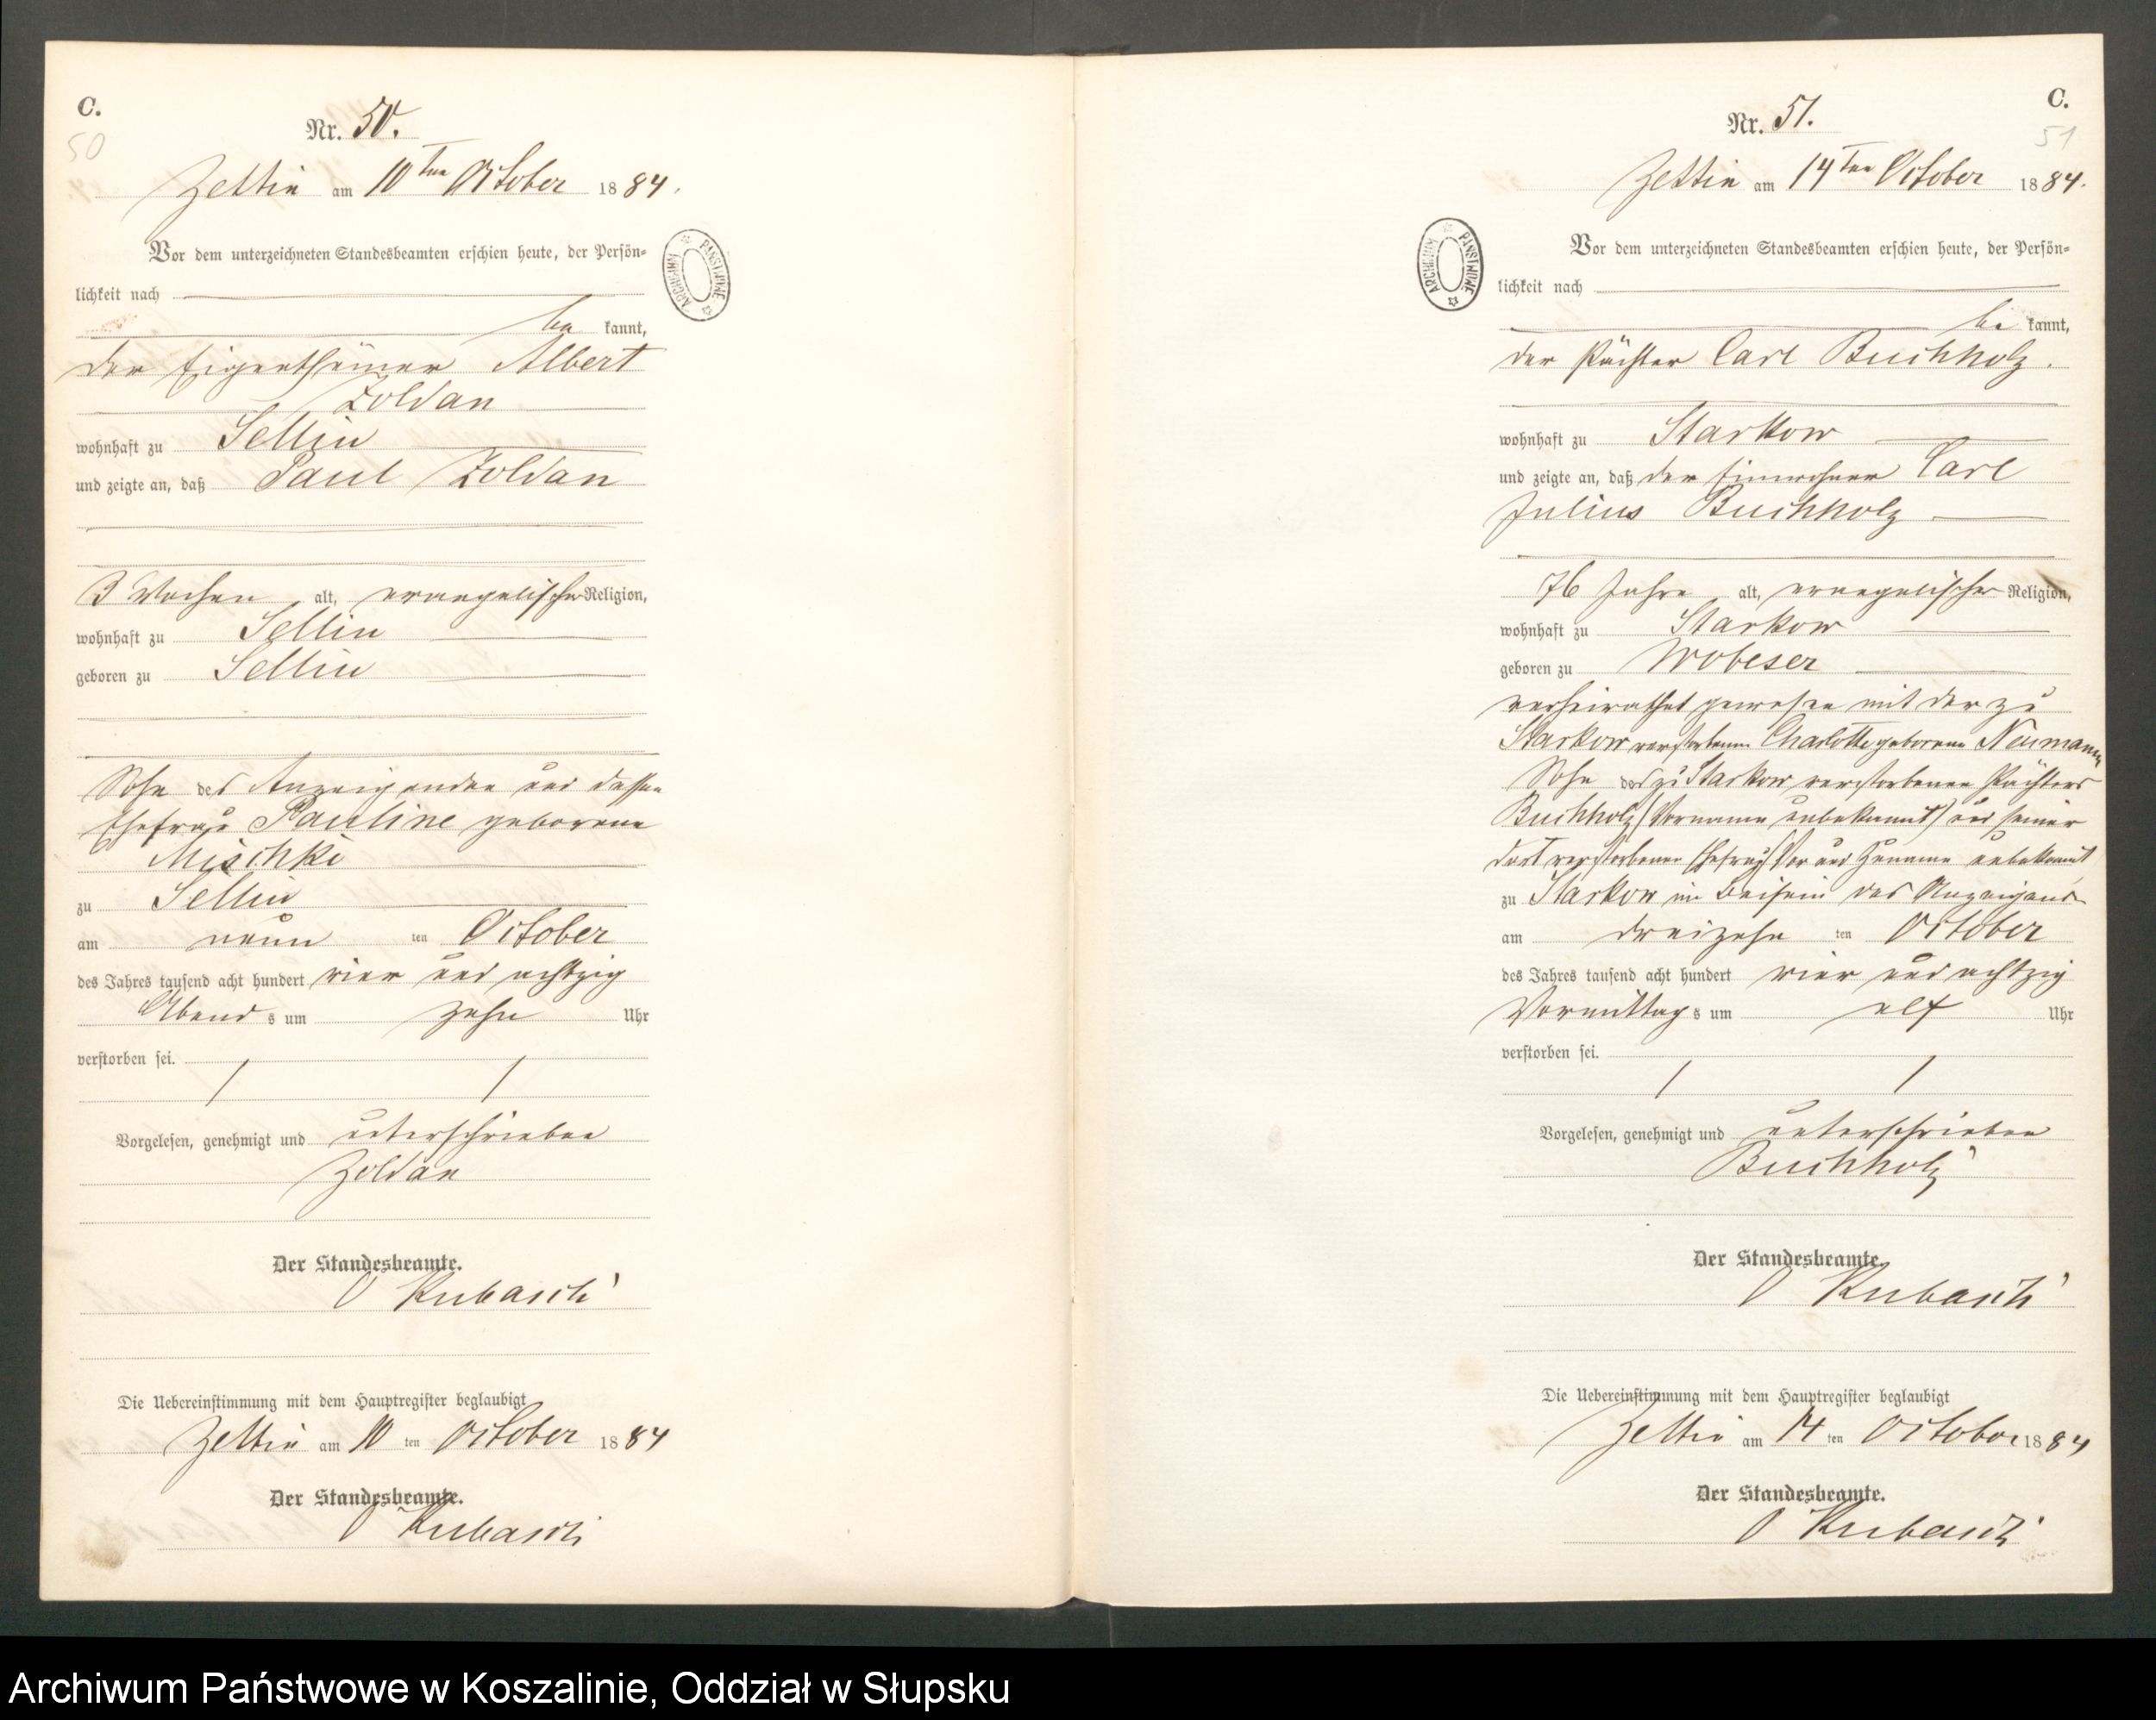 C.
50
Nr. 50.
Zettin am 10ten October 1884.
Vor dem unterzeichneten Standesbeamten erschien heute, der Persön-
lichkeit nach
be kannt,
der Eigenthümer Albert
Zoldan
wohnhaft zu Sellin
und zeigte an, daß Paul Zoldan
3 Wochen alt, evangelischer Religion,
wohnhaft zu Sellin
geboren zu Sellin
Sohn des Anzeigenden und dessen
Ehefrau Pauline geborene
Mischke
zu Sellin
am neun ten October
des Jahres tausend acht hundert vier und achtzig
Abend s um zehn Uhr
verstorben sei.
Vorgelesen, genehmigt und unterschrieben
Zoldan
Der Standesbeamte.
Kubasch
Die Uebereinstimmung mit dem Hauptregister beglaubigt
Zettin am 10 ten October 1884
Der Standesbeamte.
Kubasch
C.
51
Nr. 51.
Zettin am 14ten October 1884.
ARCHIWUM PAŃSTWOWE
Vor dem unterzeichneten Standesbeamten erschien heute, der Persön-
lichkeit nach
be kannt,
der Pächter Carl Buchholz.
wohnhaft zu Starkow
und zeigte an, daß der Einwohner Carl
Julius Buchholz
76 Jahre alt, evangelischer Religion,
wohnhaft zu Starkow
geboren zu Wobeser
verheirathet gewesen mit der zu
Starkow verstorbenen Charlotte geborene Neumann
Sohn des zu Starkow verstorbenen Pächters
Buchholz (Vorname unbekannt) und seiner
dort verstorbenen Ehefrau Vor und Zuname unbekannt
zu Starkow im Beisein des Anzeigend
am dreizehn ten October
des Jahres tausend acht hundert vier und achtzig
Vormittag s um elf Uhr
verstorben sei.
Vorgelesen, genehmigt und unterschrieben
Buchholz
Der Standesbeamte.
Kubasch
Die Uebereinstimmung mit dem Hauptregister beglaubigt
Zettin am 14 ten October 1884
Der Standesbeamte.
Kubasch
Archiwum Państwowe w Koszalinie, Oddział w Słupsku